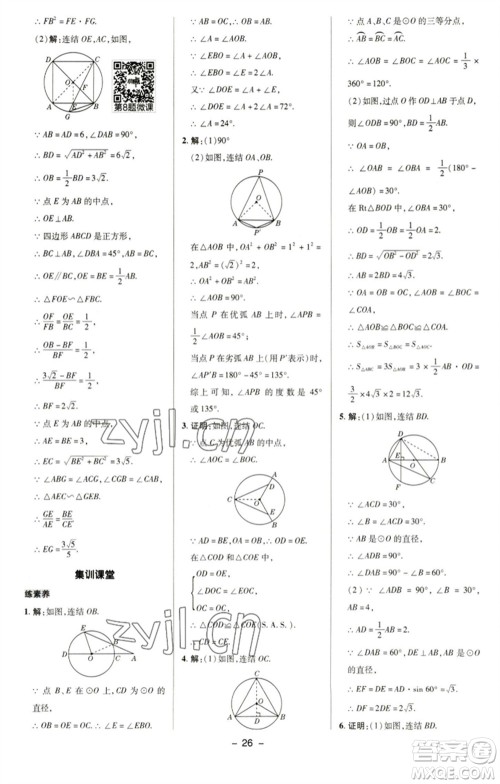 ∴ FB² = FE·FG.
(2)解:连结OE,AC,如图,
D
C
O
F
A
E
B
第8题微课
∵ AB = AD = 6,∠DAB = 90°,
∴ BD = √(AD² + AB²) = 6√2.
∴ OB = 1/2 BD = 3√2.
∵ 点E为AB的中点,
∴ OE⊥AB.
∵ 四边形ABCD是正方形,
∴ BC⊥AB,∠DBA = 45°,AB = BC.
∴ OE∥BC,OE = BE = 1/2 AB.
∴ △OEF∽△BCF.
∴ OF/BF = OE/BC = 1/2.
∴ (OB - BF)/BF = 1/2.
∴ (3√2 - BF)/BF = 1/2.
∴ BF = 2√2.
∵ 点E为AB的中点,
∴ AE = BE = 3.
∴ EC = √(BE² + BC²) = 3√5.
∵ ∠ABG = ∠ACG,∠AEG = ∠CEB,
∴ △AEG∽△CEB.
∴ GE/BE = AE/CE.
∴ EG = 3√5/5.
集训课堂
练素养
1. 解:如图,连结OB.
E
B
D
O
C
A
∵ 点D,E,B,C都在⊙O上,DC是⊙O的直径,
∴ OB = OC = OD = OE.
∵ AB = OC,∴ AB = OB.
∴ ∠A = ∠AOB.
∵ OB = OE,
∴ ∠E = ∠OBE = ∠AOB + ∠A = 2∠A.
又∵ ∠DOE = ∠E + ∠A,
∴ ∠DOE = 2∠A + ∠A = 72°.
∴ ∠A = 24°.
2. 解:(1)90°
(2)如图,连结OA,OB.
P
O
A
B
P'
在△AOB中,OA² + OB² = 1² + 1² = 2,AB² = (√2)² = 2,
∴ OA² + OB² = AB².
∴ ∠AOB = 90°.
当点P在优弧AB上时,∠APB = 1/2∠AOB = 45°;
当点P在劣弧AB上(如图P'表示)时,∠AP'B = 180° - 45° = 135°.
综上可知,∠APB的度数为45°或135°.
3. 证明:如图,连结OC.
A
D
C
O
E
B
∵ 点C为优弧AB的中点,
∴ ∠AOC = ∠BOC.
∵ AD = BE,OA = OB,∴ OD = OE.
在△COD和△COE中,
OD = OE,
∠DOC = ∠EOC,
OC = OC,
∴ △COD≌△COE(S.A.S.).
∴ CD = CE.
4. 解:(1)如图,连结OC.
C
O
D
A
B
∵ 点A,B,C为⊙O的三等分点,
∴ AB = BC = AC.
∴ ∠AOB = ∠BOC = ∠AOC = 1/3 × 360° = 120°.
(2)如图,过点O作OD⊥AB于点D,
∵ OA = OB,
∴ ∠OAB = ∠OBA = 1/2(180° - ∠AOB) = 30°.
在Rt△OBD中,∠OBD = 30°,
∴ OD = 1/2 OB = 1.
∴ BD = √(OB² - OD²) = √3.
∴ AB = 2BD = 2√3.
∵ ∠AOB = ∠BOC = ∠AOC,
∴ S△AOB = S△BOC = S△AOC.
3/2 × 4√3 × 2 = 12√3.
5. 解:(1)如图,连结BD.
∵ ∠ACD = 30°,
∴ ∠B = ∠ACD = 30°.
∵ AB是⊙O的直径,
∴ ∠ADB = 90°.
∴ ∠DAB = 90° - ∠B = 60°.
(2)∵ ∠ADB = 90°,∠B = 30°,AB = 4,
∴ AD = 1/2 AB = 2.
∵ ∠DAB = 60°,DE⊥AB,且AB是直径,
∴ EF = DE = AD·sin 60° = √3.
∴ DF = 2DE = 2√3.
6. 证明:(1)如图,连结BD.
- 26 -
zyjl.cn
zyjl.cn
答案圈
MXQE.COM